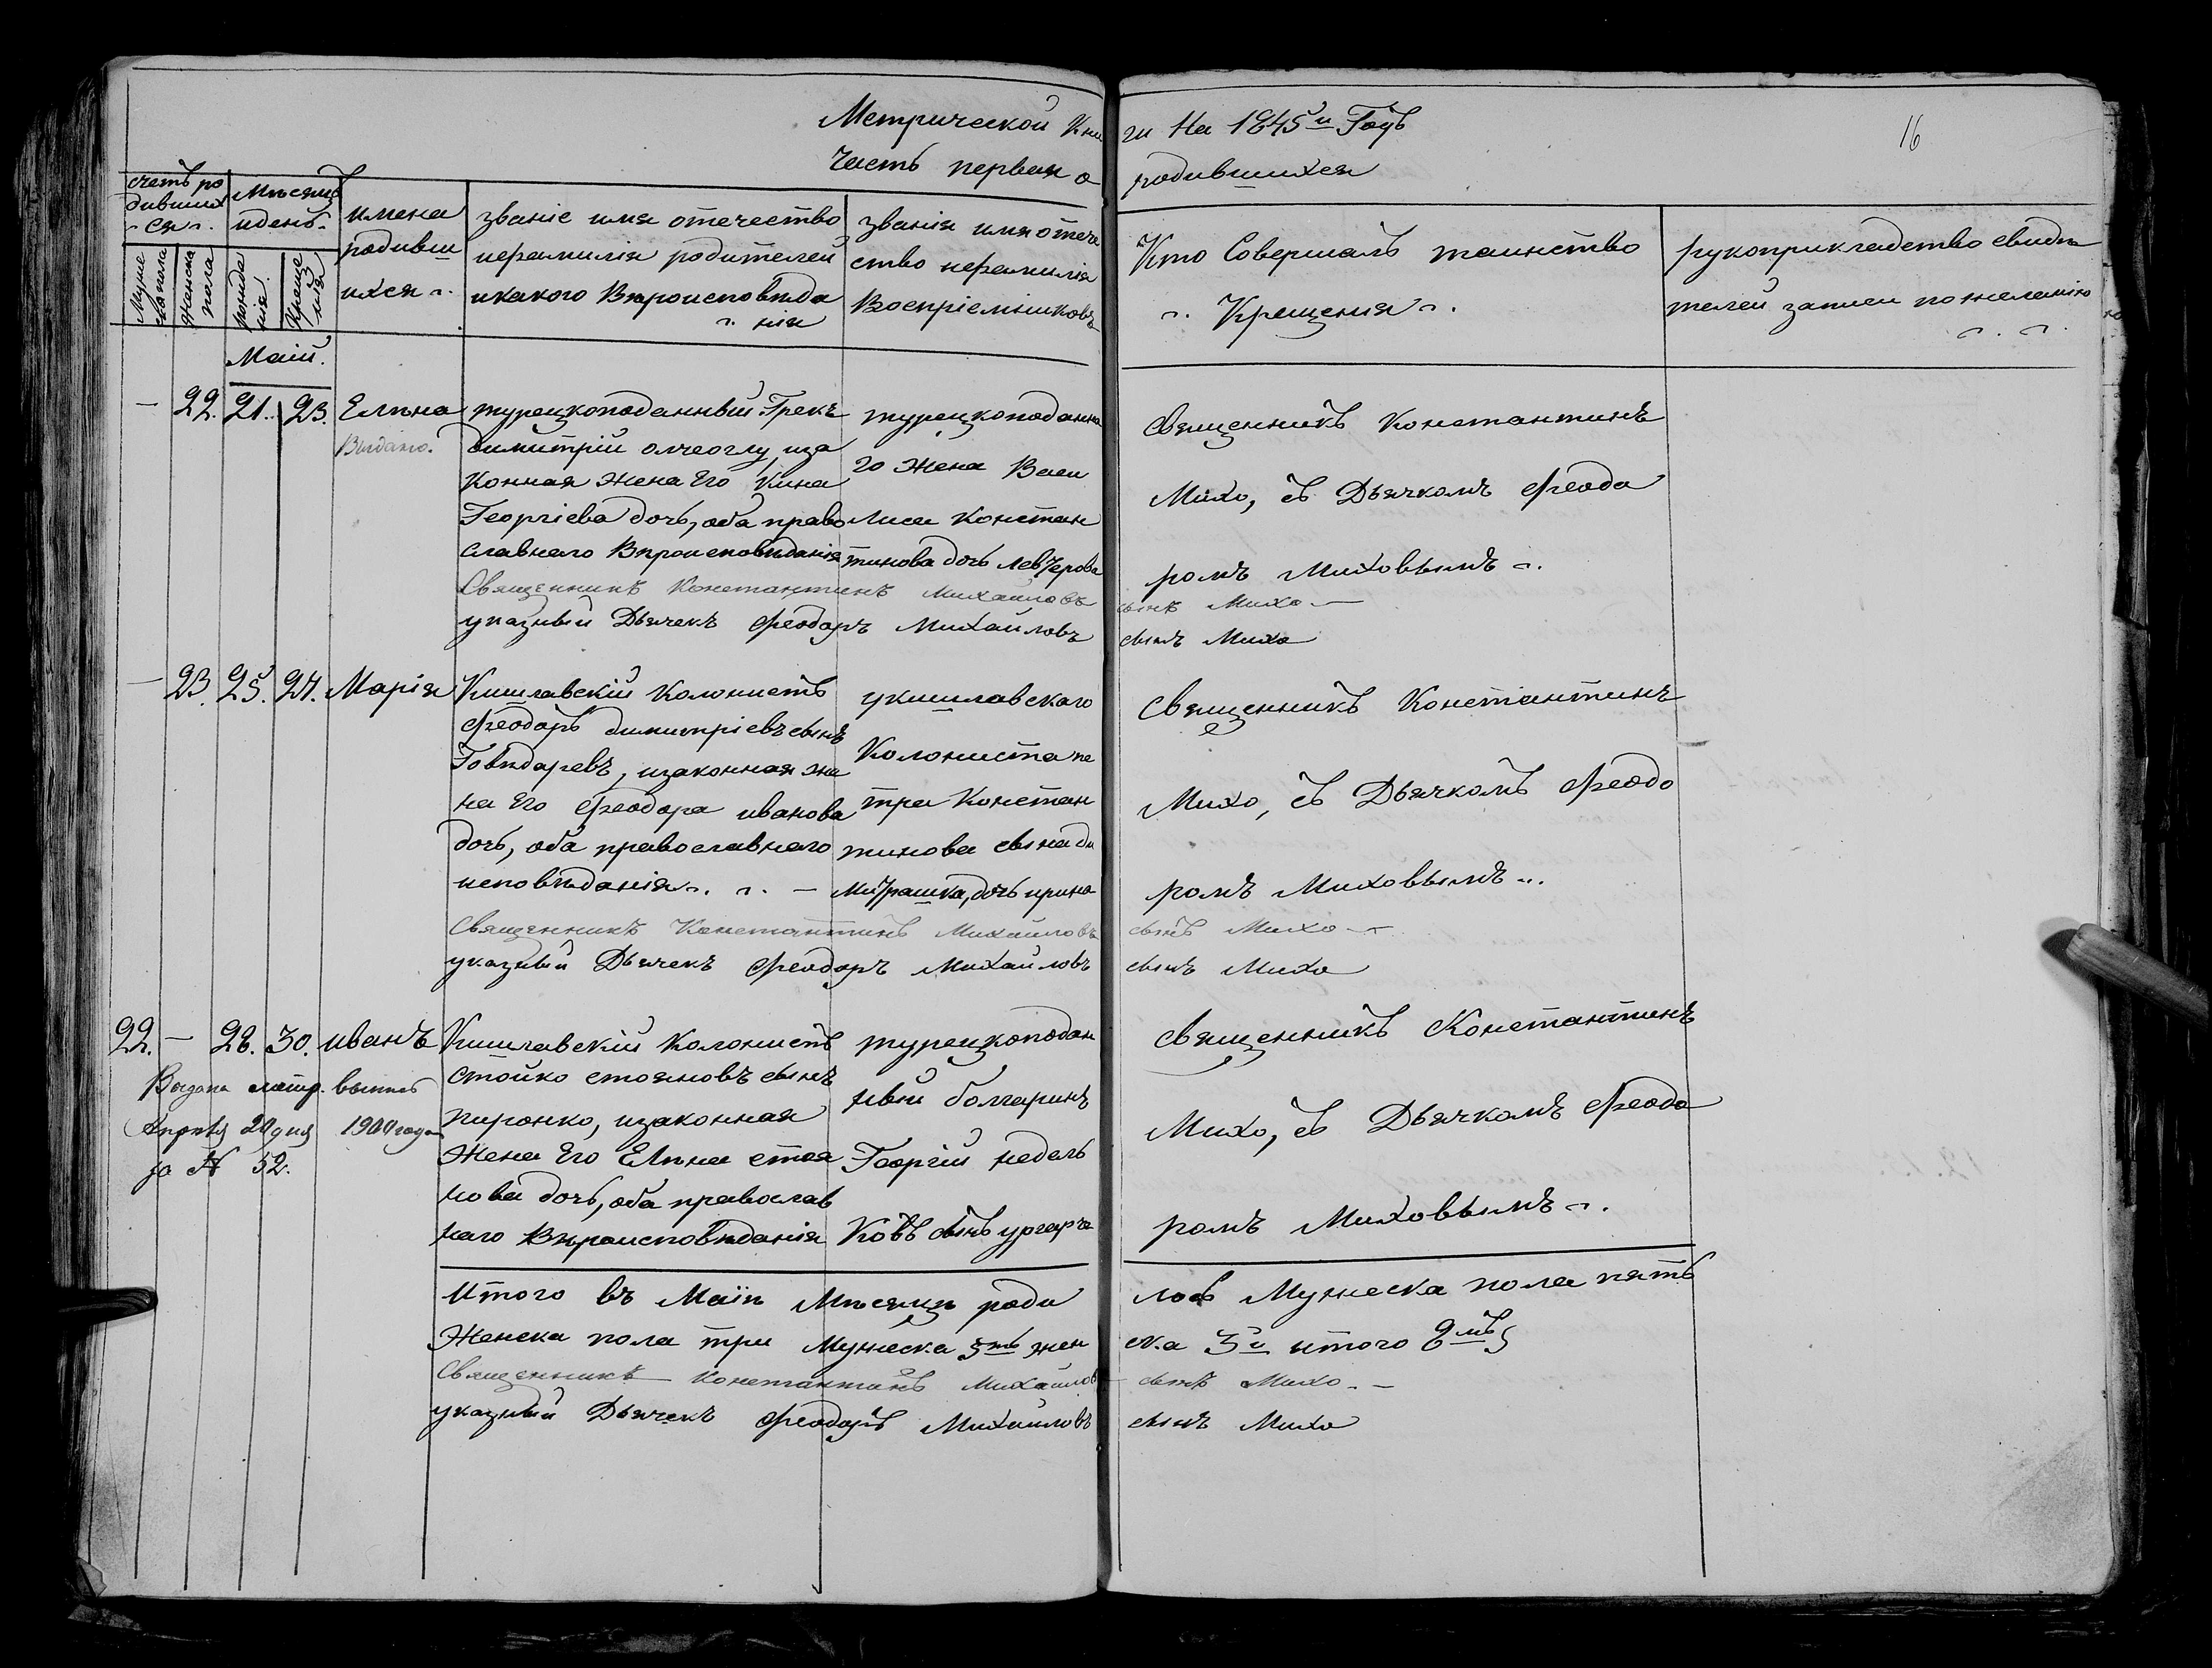 Метрической Кни ги На 1845й Годъ
16
Часть первая о родившихся
счетъ ро
дивших
ся
Мѣсяцъ
и день
имена
родивш
ихся
званіе имя отечество
и фамилія родителей
и какого Вѣроисповѣда
нія
званія имя отече
ство и фамилія
Воспріемниковъ
Кто Совершалъ таинство
Крещенія
рукоприкладство свидѣ
телей записи по желанію
Муже
ска пола
Женска
пола
рожде
нія
Креще
нія
Маій.
— 22. 21. 23. Елѣна
Выдано.
турецкоподанный Грекъ
димитрій олчеоглу, иза
конная Жена Его Кина
Георгіева дочь, оба право
славнаго Вѣроисповѣданія
турецкоподанна
го Жена Васи
лиса Констан
тинова дочь
священникъ Константинъ
Михо, съ Дьячкомъ Феодо
ромъ Миховымъ
Священникъ Константинъ Михайловъ сынъ Михо
указный Дьячекъ Феодоръ Михайловъ сынъ Михо
— 23. 25. 27. Марія
Кишлавскій Колонистъ
Феодоръ димитріевъ сынъ
Говѣдаревъ, изаконная же
на Его Феодора иванова
дочь, оба православнаго
исповѣданія —
укишлавскаго
Колониста пе
тра Констан
тинова сына ди
митрашка, дочь ирина
священникъ Константинъ
Михо, съ Дьячкомъ Феодо
ромъ Миховымъ
Священникъ Константинъ Михайловъ сынъ Михо
указный Дьячекъ Феодоръ Михайловъ сынъ Михо
22. — 28. 30. иванъ
Выдана метр. выпись
Апрѣля 20 дня 1900 года
за № 52.
Кишлавскій Колонистъ
стойко стояновъ сынъ
пиронко, изаконная
Жена Его Елѣна стоя
нова дочь, оба православ
наго Вѣроисповѣданія
турецкоподан
ный болгаринъ
Георгій недель
ковъ сынъ
священникъ Константинъ
Михо, съ Дьячкомъ Феодо
ромъ Миховымъ
Итого въ Маіѣ Мѣсяцѣ роди лось Мужеска пола пять
Женска пола три Мужеска 5ть жен ска 3и итого 8мь
Священникъ Константинъ Михайловъ сынъ Михо
указный Дьячекъ Феодоръ Михайловъ сынъ Михо